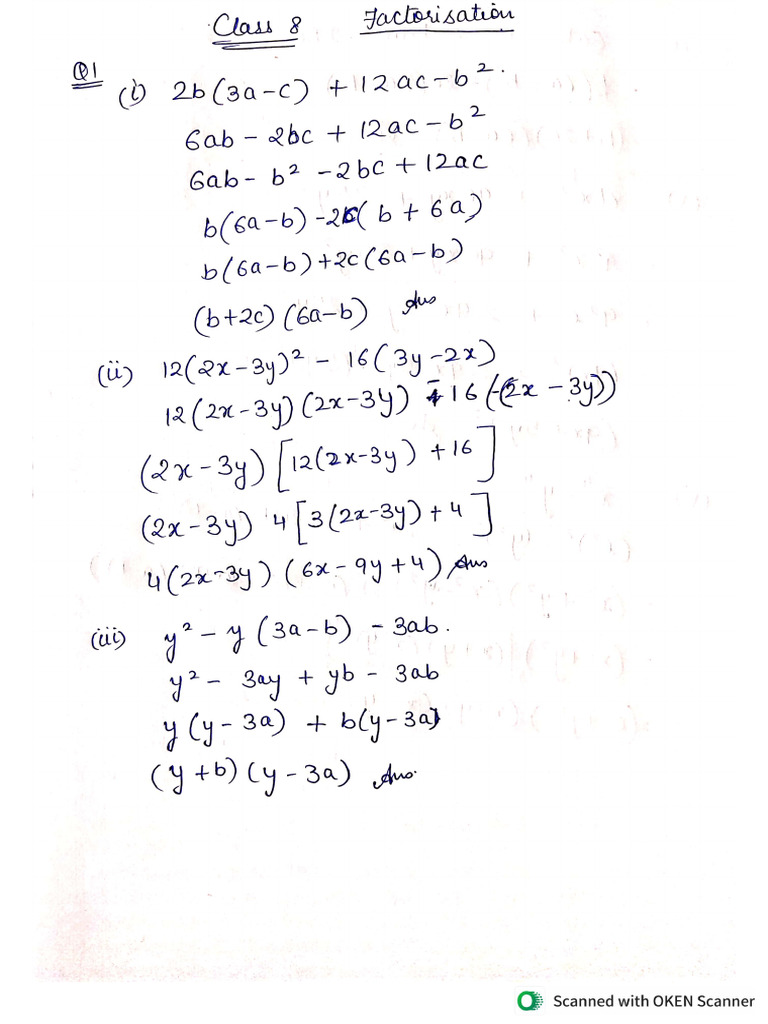 Class 8 Factorisation
Q1
(i) 2b(3a-c) + 12ac - b².
6ab - 2bc + 12ac - b²
6ab - b² - 2bc + 12ac
b(6a-b) - 2c( b + 6a)
b(6a-b) + 2c(6a-b)
(b+2c) (6a-b) Ans
(ii) 12(2x-3y)² - 16(3y-2x)
12(2x-3y)(2x-3y) - 16(-(2x-3y))
(2x-3y) [12(2x-3y) + 16]
(2x-3y) 4[3(2x-3y) + 4]
4(2x-3y) (6x-9y+4) Ans
(iii) y² - y(3a-b) - 3ab.
y² - 3ay + yb - 3ab
y(y-3a) + b(y-3a)
(y+b)(y-3a) Ans.
Scanned with OKEN Scanner